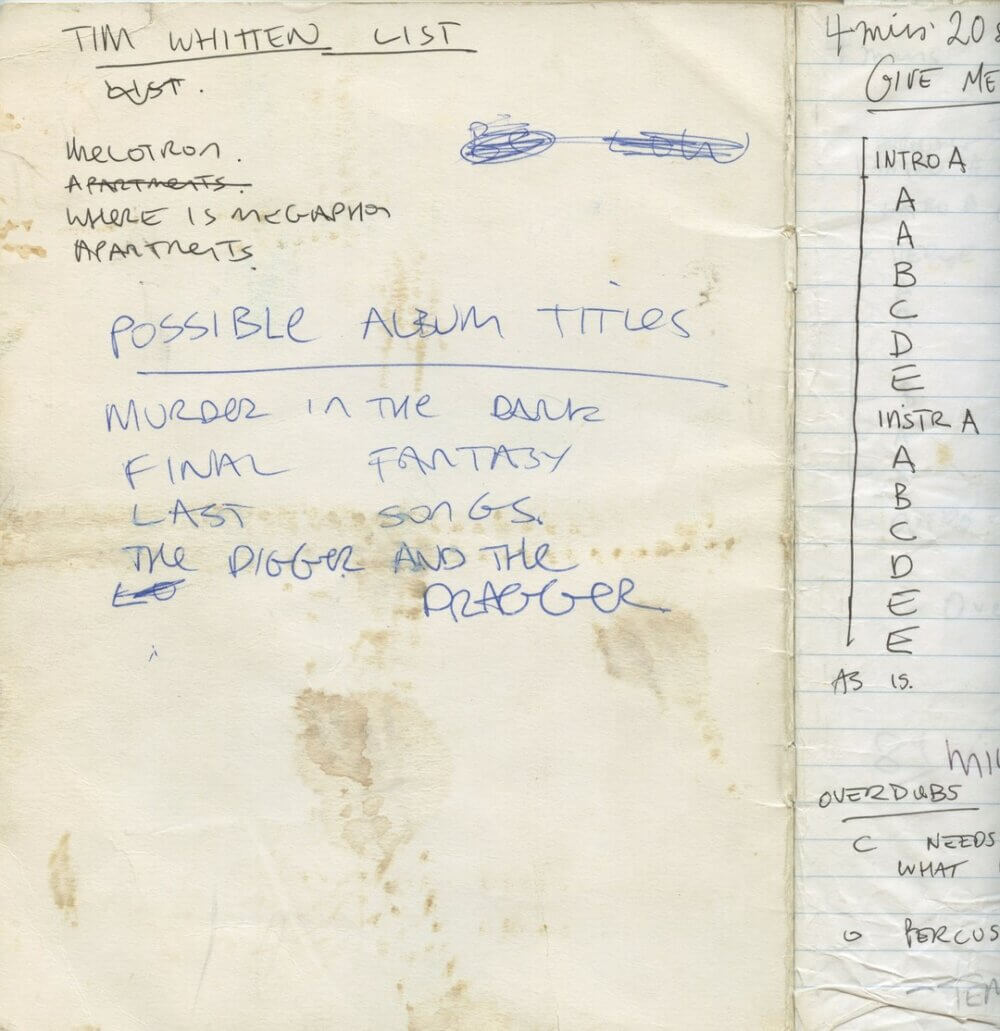 TIM WHITTEN LIST
LIST.
MELOTRON.
APARTMENTS.
WHERE IS MEGAPHON
APARTMENTS.
POSSIBLE ALBUM TITLES
MURDER IN THE DARK
FINAL FANTASY
LAST SONGS.
THE DIGGER AND THE
DRAGGER
4 mins 20 s
GIVE ME
INTRO A
A
A
B
C
D
E
INSTR A
A
B
C
D
E
E
AS IS.
OVERDUBS
C NEEDS
WHAT
O PERCUS